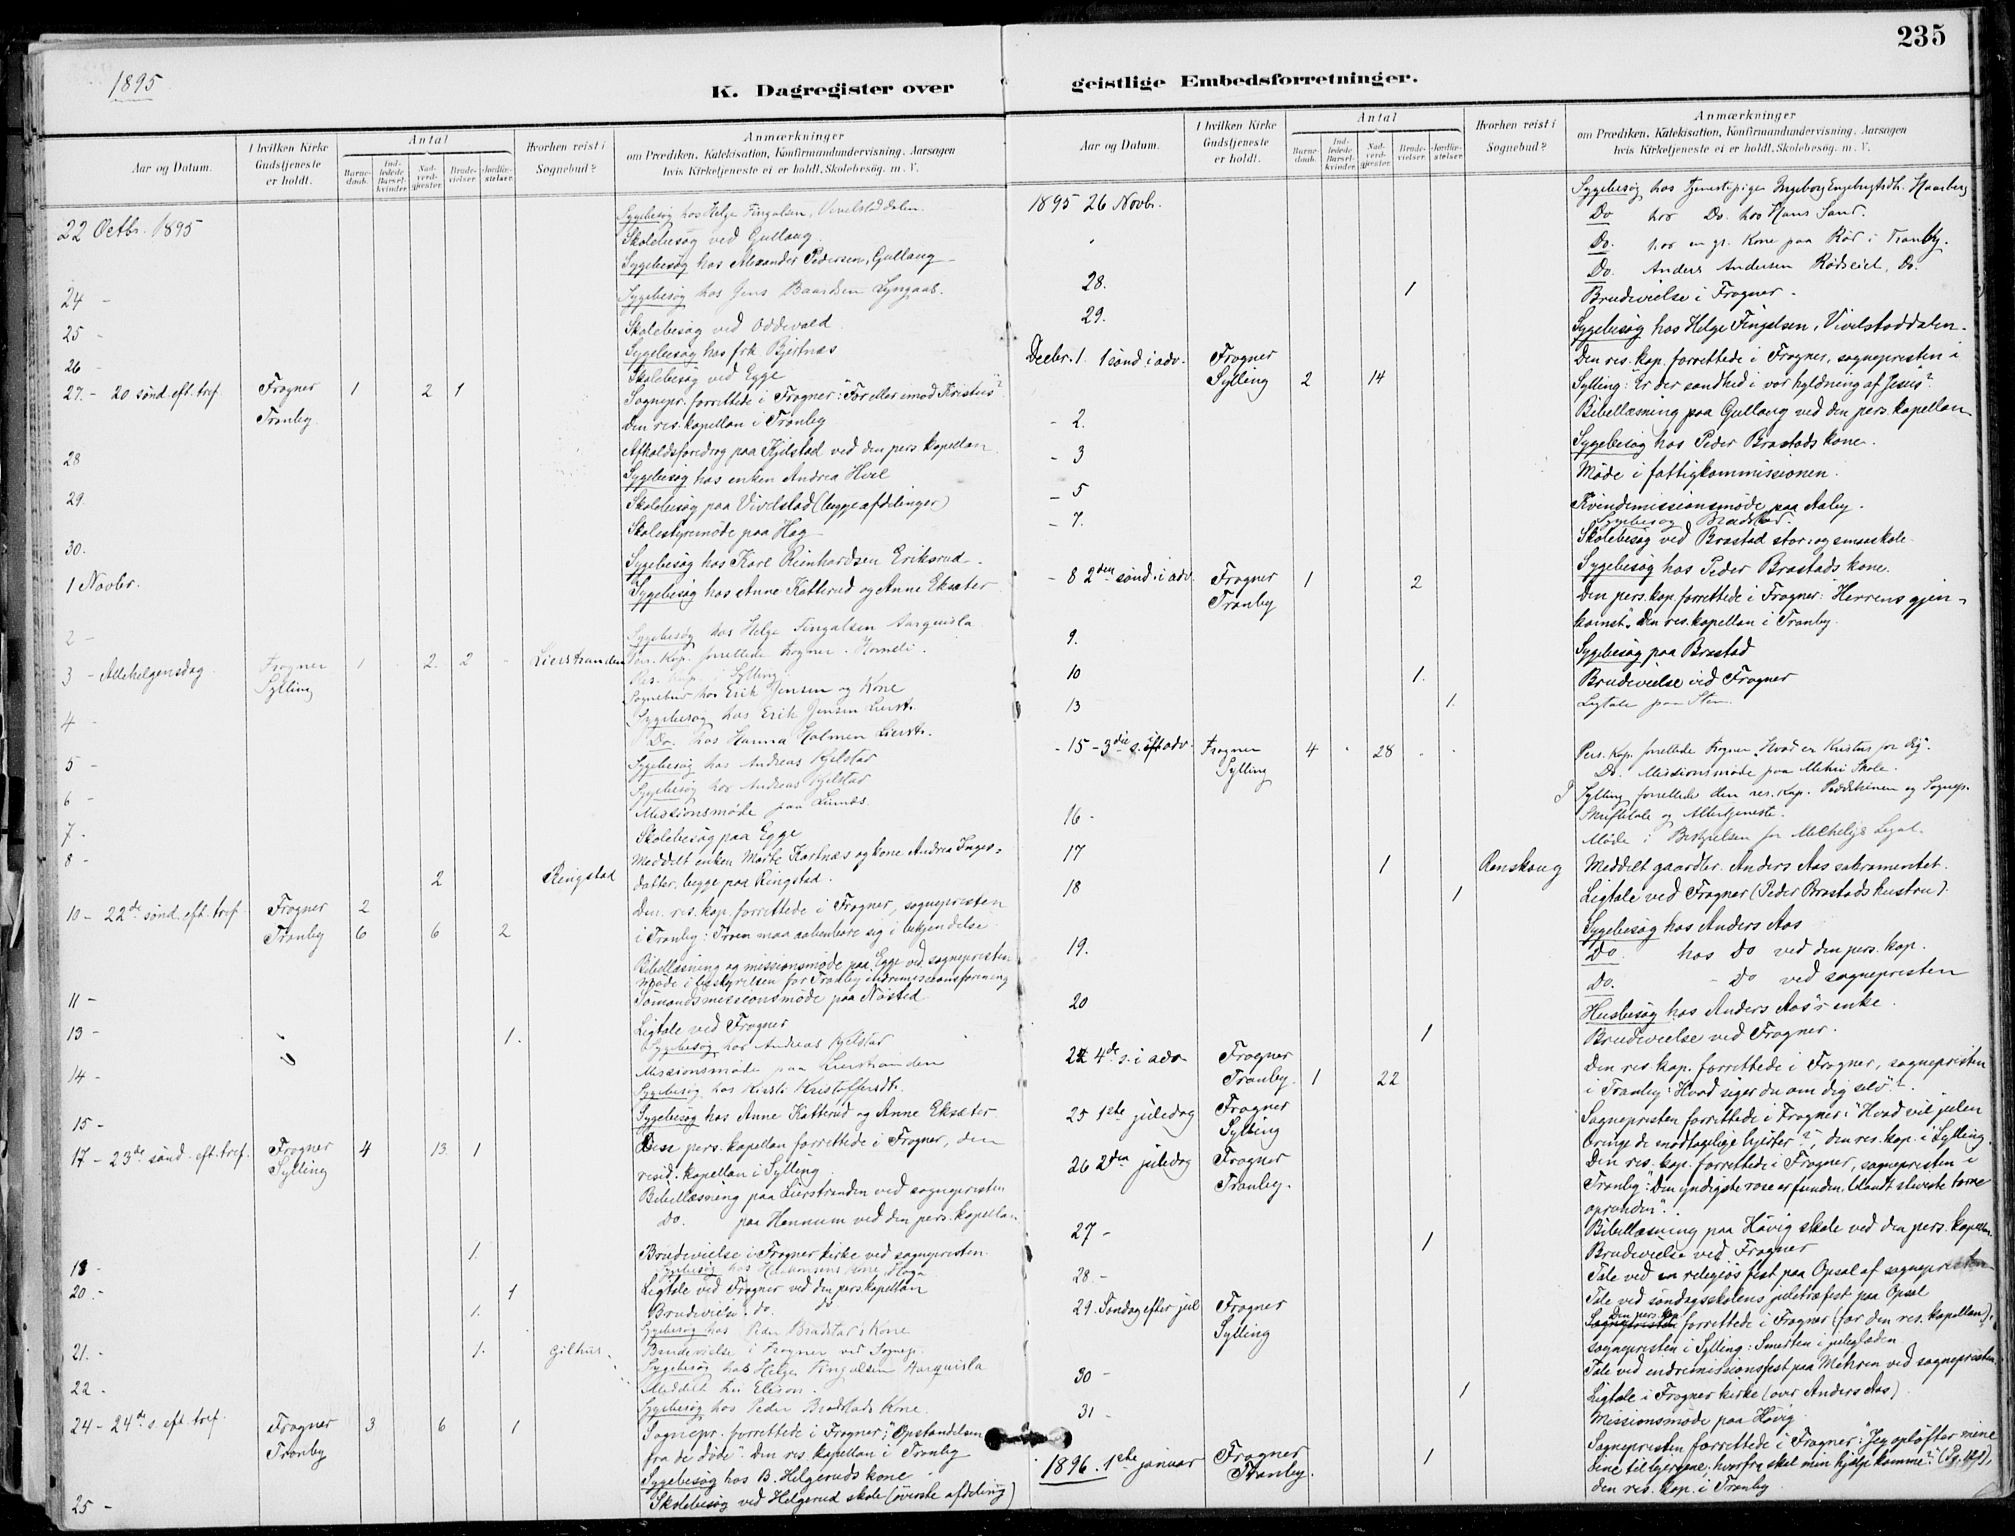 235
1895
K. Dagregister over geistlige Embedsforretninger.
Aar og Datum.
I hvilken Kirke Gudstjeneste er holdt.
Antal
Barnedaab.
Indledede Barselkvinder.
Nadverdgjester.
Brudevielser.
Jordfæstelser.
Hvorhen reist i Sognebud?
Anmærkninger
om Prædiken, Katekisation, Konfirmandundervisning, Aarsagen
hvis Kirketjeneste ei er holdt, Skolebesøg. m. V.
22 Octbr. 1895 Sygebesøg hos Helge Fingalsen, Vivelstaddalen.
Skolebesøg ved Gullaug.
Sygebesøg hos Alexander Pedersen, Gullaug
24 - Sygebesøg hos Jens Baardsen Lyngaas.
25 - Skolebesøg ved Oddevald.
26 Sygebesøg hos frk. Bjertnæs
Skolebesøg ved Egge
27. - 20 sønd. eft. tref. Frogner 1 2 1 Sognepr. forrettede i Frogner: "For eller imod Kristus"?
Tranby Den res. kapellan i Tranby
Afholdsforedrag paa Kjelstad ved den pers. kapellan
28 Sygebesøg hos enken Andrea Hval
29. Skolebesøg paa Vivelstad (begge afdelinger)
Skolestyremøde paa Hag
30. Sygebesøg hos Karl Reinhardsen Eriksrud
1 Novbr. Sygebesøg hos Anne Katterud og Anne Eksæter
2 - Sygebesøg hos Helge Fingalsen
3 - Allehelgensdag Frogner 1 2 2 Lierstranden Pers. Kap. forrettede Frogner.
Sylling Res. kap. i Sylling
hos Erik Jensen og Kone
4 - Sygebesøg hos Erik Jensen Lierst.
Do. hos Hanna Holmen Lierstr.
5 - Sygebesøg hos Andreas Kjelstad
6 - Sygebesøg hos Andreas Kjelstad
Missionsmøde paa
7. Skolebesøg paa Egge
8 - Meddelt enken Marte og kone Andrea Inges-
2 Ringstad datter, begge paa Ringstad.
10 - 22de sønd. eft. tref. Frogner 2 Den res. kap. forrettede i Frogner, sognepresten
Tranby 6 6 2 i Tranby: Troen maa aabenbare sig i bekjendelse
Bibellæsning og missionsmøde paa Egge ved sognepresten
Møde i bestyrelsen for Tranby indremissionsforening
11 - Sømandsmissionsmøde paa Nøsted
13 - 1. Ligtale ved Frogner
Sygebesøg hos Andreas Kjelstad
14 - Missionsmøde paa Lierstranden
Sygebesøg hos Kirsti Kristoffersdt.
15 - Sygebesøg hos Anne Katterud og Anne Eksæter
17 - 23de sønd. eft. tref. Frogner 4 13 1 Den pers. kapellan forrettede i Frogner, den
Sylling resid. kapellan i Sylling
Bibellæsning paa Lierstranden ved sognepresten
Do. paa Hennum ved den pers. kapellan
1. Brudevielse i Frogner kirke ved sognepresten
18 - Sygebesøg hos kone, Haga
20. - 1 Ligtale ved Frogner ved den pers. kapellan
1. Brudevielse do. do
Sygebesøg hos Peder Bradstad's Kone
21. - 1. Gilhus. Brudevielse i Frogner ved Sognepr.
Sygebesøg hos Helge Fingalsen
22. Meddelt
Sygebesøg hos Peder Bradstads Kone.
24 - 24de s. eft. tref. Frogner 3 6 1 Sognepr. forrettede i Frogner: "Opstandelsen
Tranby fra de døde". Den res. kapellan i Tranby
Sygebesøg hos B. Helgeruds kone
25 - Skolebesøg ved Helgerud skole (øverste afdeling)
Aar og Datum.
I hvilken Kirke Gudstjeneste er holdt.
Antal
Barnedaab.
Indledede Barselkvinder.
Nadverdgjester.
Brudevielser.
Jordfæstelser.
Hvorhen reist i Sognebud?
Anmærkninger
om Prædiken, Katekisation, Konfirmandundervisning, Aarsagen
hvis Kirketjeneste ei er holdt, Skolebesøg. m. V.
1895 26 Novbr. Sygebesøg hos tjenestepigen Ingeborg Engebregtsdt.
Do hos Do. hos Hans Sand.
Do. hos en gl. Kone paa Rød i Tranby.
Do. Anders Andersen Rødseiet, Do.
28. 1 Brudevielse i Frogner.
29. Sygebesøg hos Helge Fingalsen, Vivelstaddalen.
Decbr. 1. 1 sønd. i adv. Frogner Den res. kap. forrettede i Frogner, sognepresten i
Sylling 2 14 Sylling: "Er der sandhed i vor hyldning af Jesus"?
- 2. Bibellæsning paa Gullaug ved den pers. kapellan
- 3 Sygebesøg hos Peder Brastads kone.
Møde i fattigkommissionen.
- 5 Kvindemissionsmøde paa Aaby.
- 7. Sygebesøg Bradstad.
Skolebesøg ved Brastad stor- og smaaskole
- 8 2den sønd. i adv. Frogner 1 2 Sygebesøg hos Peder Brastads kone.
Tranby Den pers. kap. forrettede i Frogner: "Herrens gjen-
komst". Den res. kapellan i Tranby.
9. Sygebesøg paa Brastad
10 1. Brudevielse ved Frogner
13 1. Ligtale paa Sten.
- 15 - 3die s. i adv. Frogner 4 28 Pers. Kap. forrettede Frogner "Hvad er Kristus for dig".
Sylling Do. Missionsmøde paa Skole.
I Sylling forrettede den res. Kap. Prædikenen og Sognepr.
16 - Skriftetale og Altertjeneste.
Møde i Bestyrelsen for Legat.
17 1 Renskaug Meddelt gaardbr. Anders Aas sakramentet.
18 1 Ligtale ved Frogner (Peder Brastads hustru).
Sygebesøg hos Anders Aas
19. Do. hos Do ved den pers. kap.
Do. - Do ved sognepresten
20 Husbesøg hos Anders Aas's enke.
1 Brudevielse ved Frogner.
22 4de s. i adv. Frogner Den res. kap. forrettede i Frogner, sognepresten
Tranby. 1 22 i Tranby: Hvad siger du om dig selv"?
25 1ste juledag Frogner Sognepresten forrettede i Frogner: "Hvad vil julen
Sylling bringe de modtagelige hjerter"?, den res. kap. i Sylling.
26 2den juledag Frogner Den res. kap. forrettede i Frogner, sognepresten i
Tranby. Tranby: "Den yndigste rose er funden, blandt stiveste torne
oprunden".
27 - Bibellæsning paa Høvig skole ved den pers. kapellan
1 Brudevielse ved Frogner
28. - Tale ved en religiøs fest paa Opsal af sognepresten
Tale ved søndagsskolens juletræfest paa Opsal
29. Søndag efter jul Frogner Sognepresten Den pers. kap. forrettede i Frogner (for den res. kapellan),
Sylling sognepresten i Sylling: Smerten i juleglæden
30 - Tale ved indremissionsfest paa Mehren ved sognepresten
1 Ligtale i Frogner kirke (over Anders Aas).
31 - Missionsmøde paa Høvig
1896. 1ste januar Frogner 1 Sognepresten forrettede i Frogner: "Jeg opløfter mine
Tranby. øine til bjergene, hvorfra skal min hjælp komme"?
den res. kap. i Tranby.